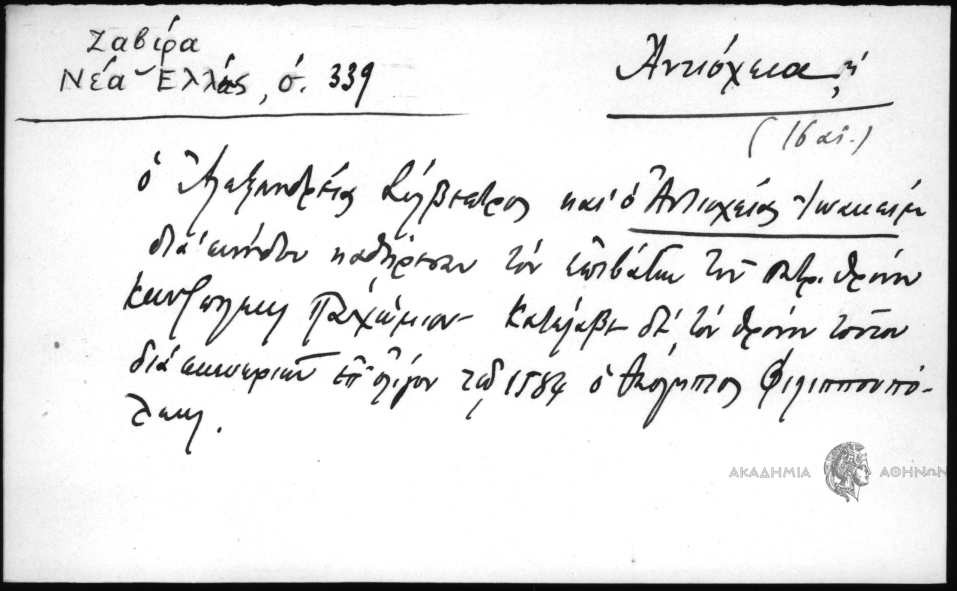 Ζαβίρα
Νέα Ἑλλάς, σ. 339
Ἀντιόχεια, ἡ
(16 αἰ.)
ὁ Ἀλεξανδρείας Σίλβεστρος καὶ ὁ Ἀντιοχείας Ἰωακεὶμ
διὰ συνόδου καθῄρεσαν τὸν ἐπιβάτην τοῦ πατρ. θρόνου
Κωνζπόλεως Παχώμιον. Κατέλαβε δὲ τὸν θρόνον τοῦτον
διὰ ἐπ' ὀλίγον τῷ 1584 ὁ Θεόληπτος Φιλιππουπό-
λεως.
ΑΚΑΔΗΜΙΑ ΑΘΗΝΩΝ